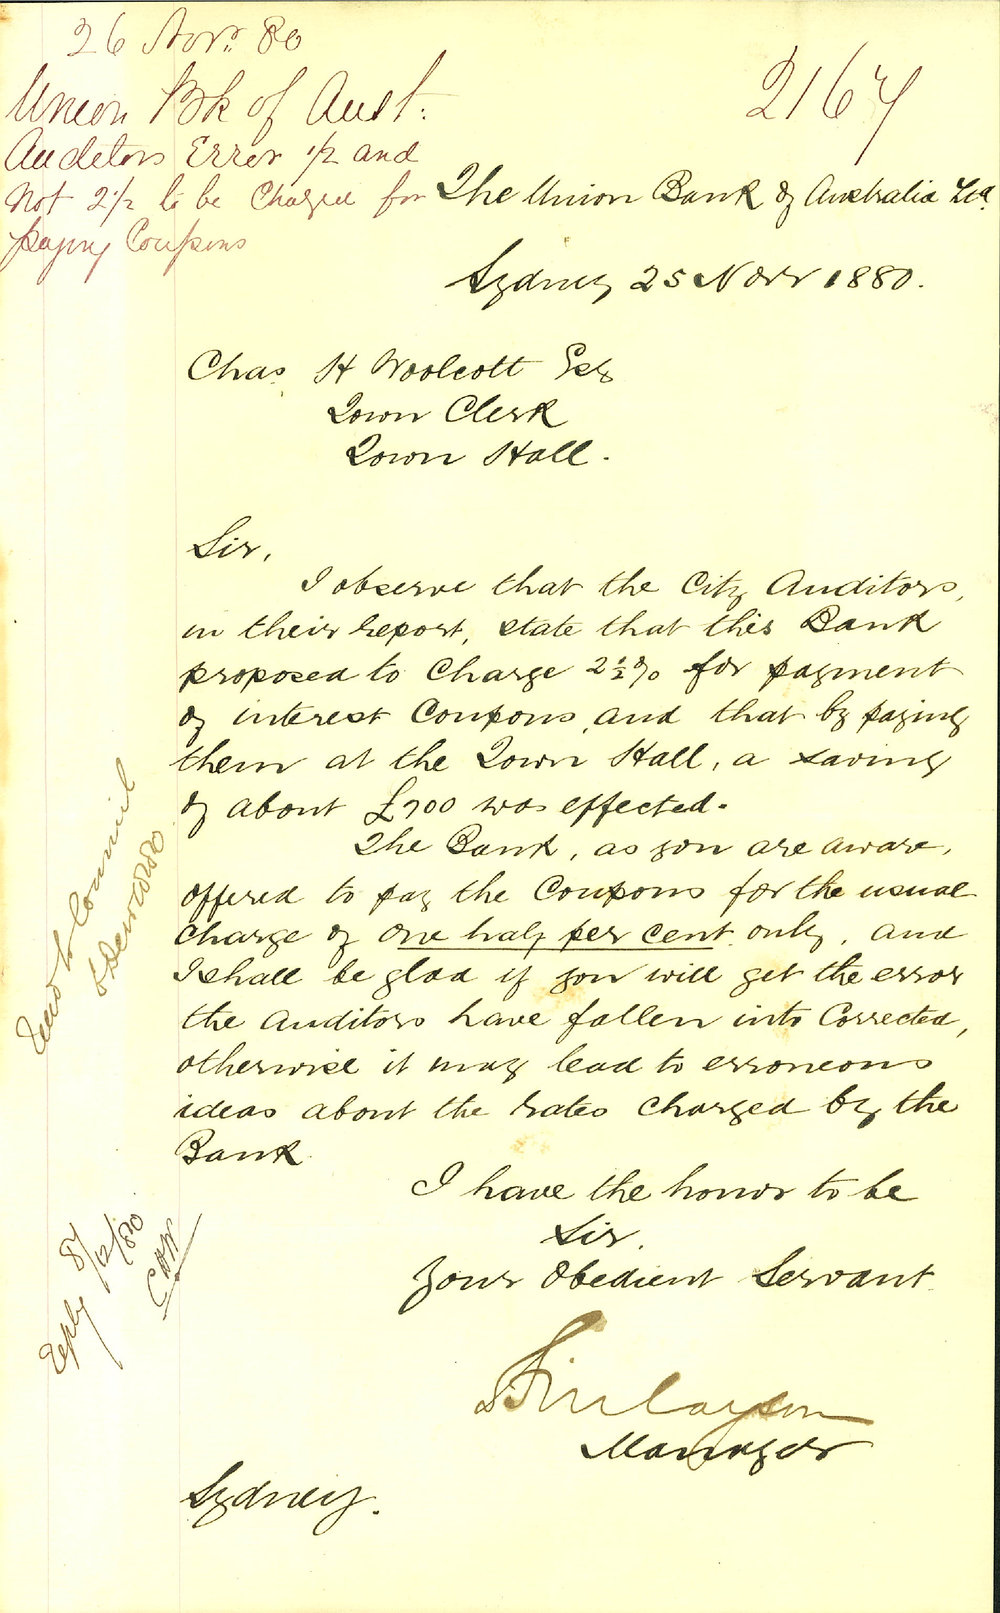 26 Novr. 80
Union Bk of Aust:
Auditors Error ½ and
Not 2½ to be Charged for
paying Coupons
2167
The Union Bank of Australia Ltd.
Sydney 25 Novr 1880.
Chas. H Woolcott Esq
Town Clerk
Town Hall.
Sir,
I observe that the City Auditors,
in their report, state that this Bank
proposed to Charge 2½% for payment
of interest Coupons, and that by paying
them at the Town Hall, a saving
of about £700 was effected.
The Bank, as you are aware,
offered to pay the Coupons for the usual
charge of one half per cent only, and
I shall be glad if you will get the error
the Auditors have fallen into Corrected,
otherwise it may lead to erroneous
ideas about the rates charged by the
Bank.
I have the honor to be
Sir.
Your Obedient Servant.
Finlayson
Manager
Sydney.
to Council
6 Decr 1880
Reply 8/12/80
CHW